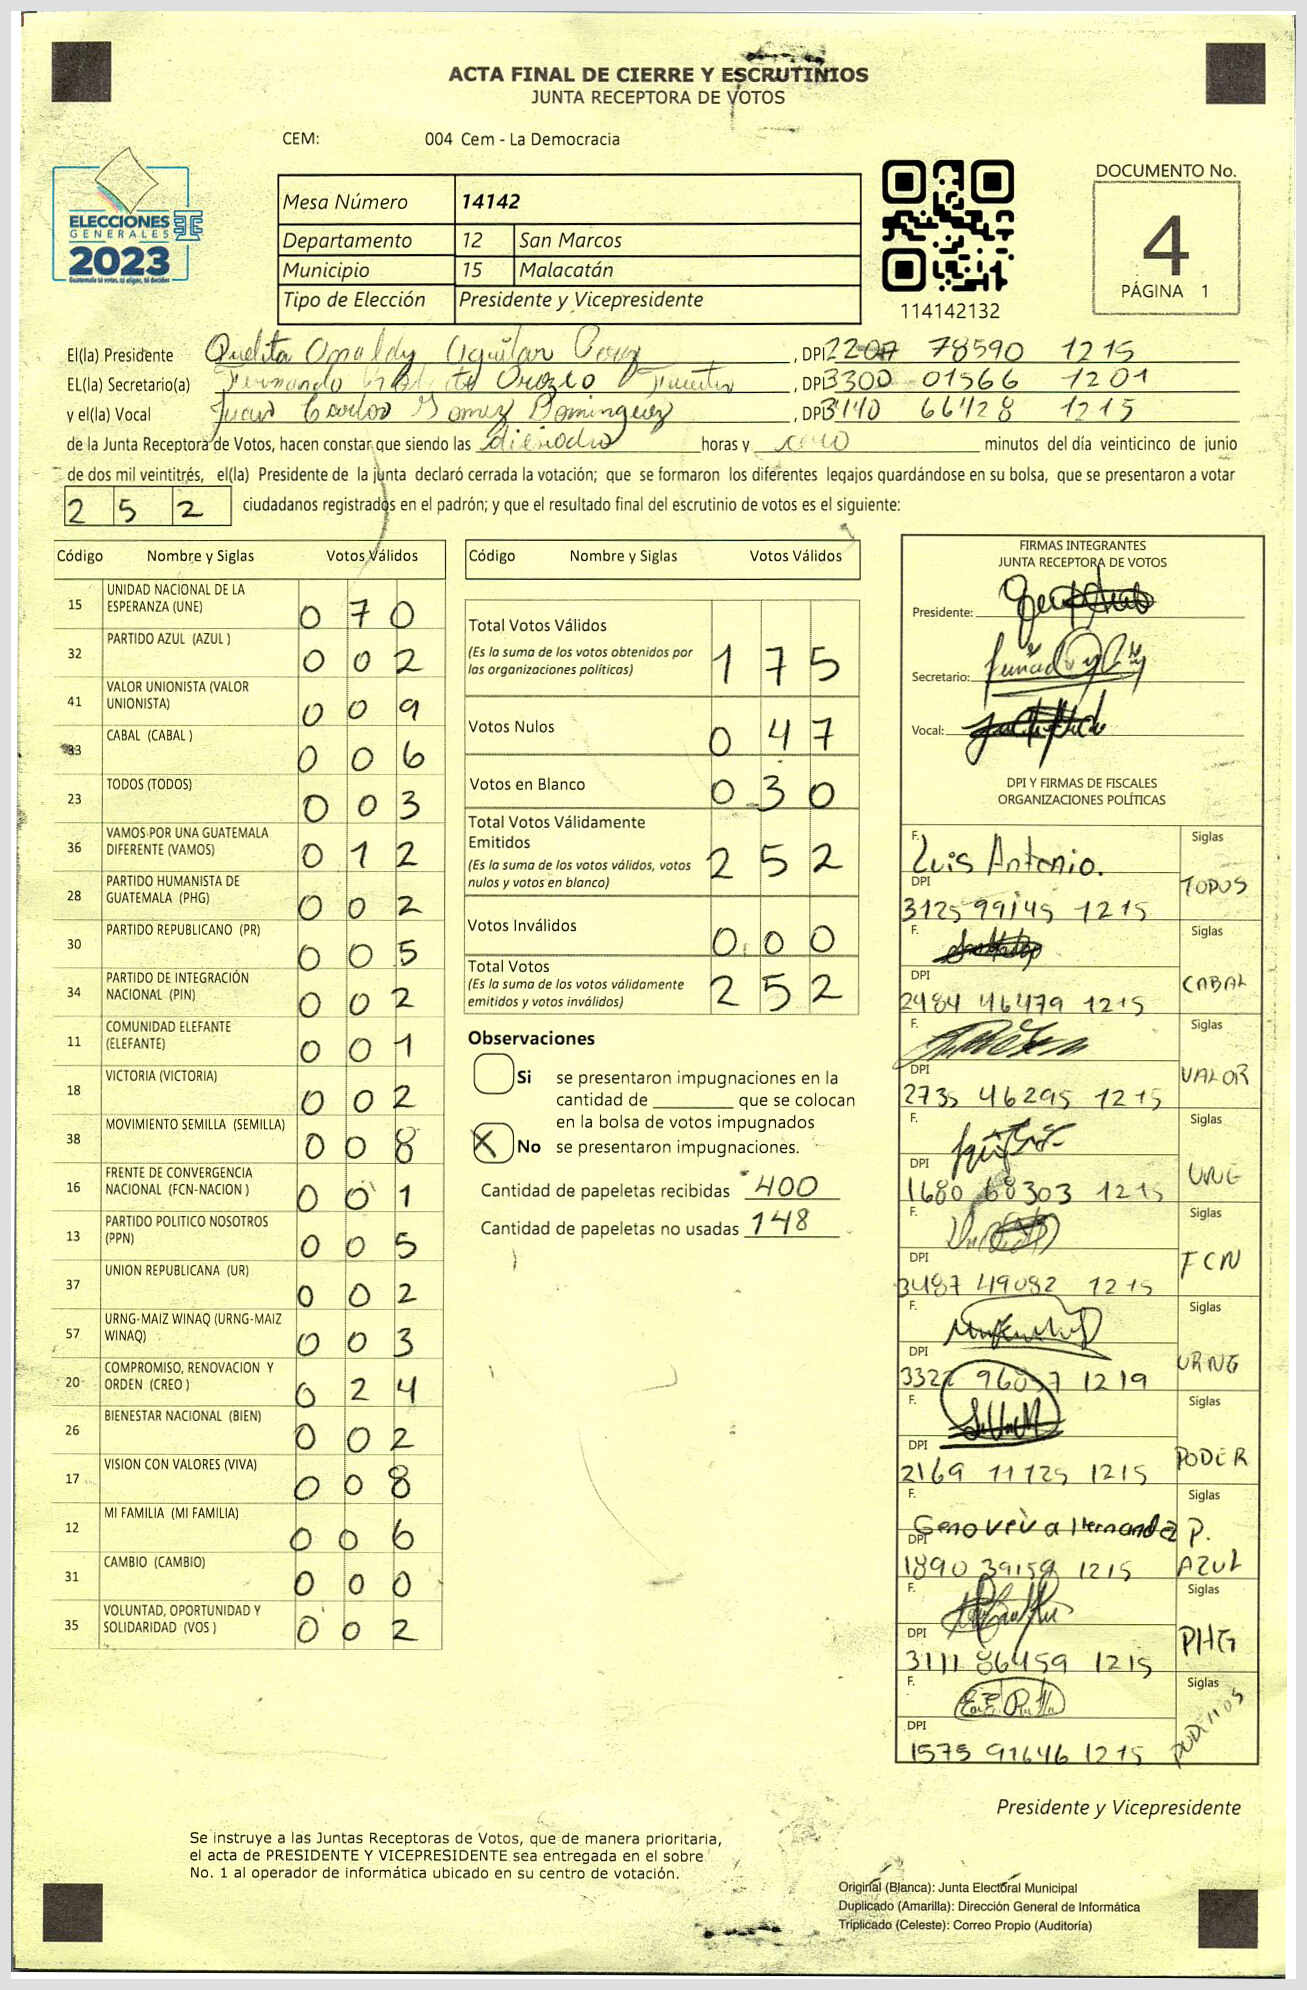 ACTA FINAL DE CIERRE Y ESCRUTINIOS
JUNTA RECEPTORA DE VOTOS
CEM: 004 Cem - La Democracia
ELECCIONES
GENERALES
2023
Guatemala tú votas, tú eliges, tú decides
Mesa Número 14142
Departamento 12 San Marcos
Municipio 15 Malacatán
Tipo de Elección Presidente y Vicepresidente
114142132
DOCUMENTO No.
4
PÁGINA 1
El(la) Presidente Aguilar Perez, DPI 78590 1215
EL(la) Secretario(a) Fernando Orozco Fuentes, DPI 3300 01566 1201
y el(la) Vocal Juan Carlos Gomez Dominguez, DPI 3140 66428 1215
de la Junta Receptora de Votos, hacen constar que siendo las dieciocho horas y cero minutos del día veinticinco de junio
de dos mil veintitrés, el(la) Presidente de la junta declaró cerrada la votación; que se formaron los diferentes legajos guardándose en su bolsa, que se presentaron a votar
2 5 2 ciudadanos registrados en el padrón; y que el resultado final del escrutinio de votos es el siguiente:
Código Nombre y Siglas Votos Válidos
15 UNIDAD NACIONAL DE LA ESPERANZA (UNE) 0 7 0
32 PARTIDO AZUL (AZUL ) 0 0 2
41 VALOR UNIONISTA (VALOR UNIONISTA) 0 0 9
33 CABAL (CABAL ) 0 0 6
23 TODOS (TODOS) 0 0 3
36 VAMOS POR UNA GUATEMALA DIFERENTE (VAMOS) 0 1 2
28 PARTIDO HUMANISTA DE GUATEMALA (PHG) 0 0 2
30 PARTIDO REPUBLICANO (PR) 0 0 5
34 PARTIDO DE INTEGRACIÓN NACIONAL (PIN) 0 0 2
11 COMUNIDAD ELEFANTE (ELEFANTE) 0 0 1
18 VICTORIA (VICTORIA) 0 0 2
38 MOVIMIENTO SEMILLA (SEMILLA) 0 0 8
16 FRENTE DE CONVERGENCIA NACIONAL (FCN-NACION ) 0 0 1
13 PARTIDO POLITICO NOSOTROS (PPN) 0 0 5
37 UNION REPUBLICANA (UR) 0 0 2
57 URNG-MAIZ WINAQ (URNG-MAIZ WINAQ) 0 0 3
20 COMPROMISO, RENOVACION Y ORDEN (CREO ) 0 2 4
26 BIENESTAR NACIONAL (BIEN) 0 0 2
17 VISION CON VALORES (VIVA) 0 0 8
12 MI FAMILIA (MI FAMILIA) 0 0 6
31 CAMBIO (CAMBIO) 0 0 0
35 VOLUNTAD, OPORTUNIDAD Y SOLIDARIDAD (VOS ) 0 0 2
Código Nombre y Siglas Votos Válidos
Total Votos Válidos 1 7 5
(Es la suma de los votos obtenidos por
las organizaciones políticas)
Votos Nulos 0 4 7
Votos en Blanco 0 3 0
Total Votos Válidamente
Emitidos 2 5 2
(Es la suma de los votos válidos, votos
nulos y votos en blanco)
Votos Inválidos 0 0 0
Total Votos 2 5 2
(Es la suma de los votos válidamente
emitidos y votos inválidos)
Observaciones
Si se presentaron impugnaciones en la
cantidad de ________ que se colocan
en la bolsa de votos impugnados
X No se presentaron impugnaciones.
Cantidad de papeletas recibidas 400
Cantidad de papeletas no usadas 148
FIRMAS INTEGRANTES
JUNTA RECEPTORA DE VOTOS
Presidente:
Secretario:
Vocal:
DPI Y FIRMAS DE FISCALES
ORGANIZACIONES POLÍTICAS
F. Luis Antonio. Siglas TODOS
DPI 3125 99145 1215
F. Siglas CABAL
DPI 2484 46479 1215
F. Siglas VALOR
DPI 2735 46295 1215
F. Siglas UNE
DPI 1680 68303 1215
F. Siglas FCN
DPI 3487 49082 1215
F. Siglas URNG
DPI 3322 1219
F. Siglas PODER
DPI 2169 11125 1215
F. Genoveva Hernandez Siglas P. AZUL
DPI 1890 39159 1215
F. Siglas PHG
DPI 3111 86459 1215
F. Siglas PODEMOS
DPI 1575 91646 1215
Presidente y Vicepresidente
Se instruye a las Juntas Receptoras de Votos, que de manera prioritaria,
el acta de PRESIDENTE Y VICEPRESIDENTE sea entregada en el sobre
No. 1 al operador de informática ubicado en su centro de votación.
Original (Blanca): Junta Electoral Municipal
Duplicado (Amarilla): Dirección General de Informática
Triplicado (Celeste): Correo Propio (Auditoría)